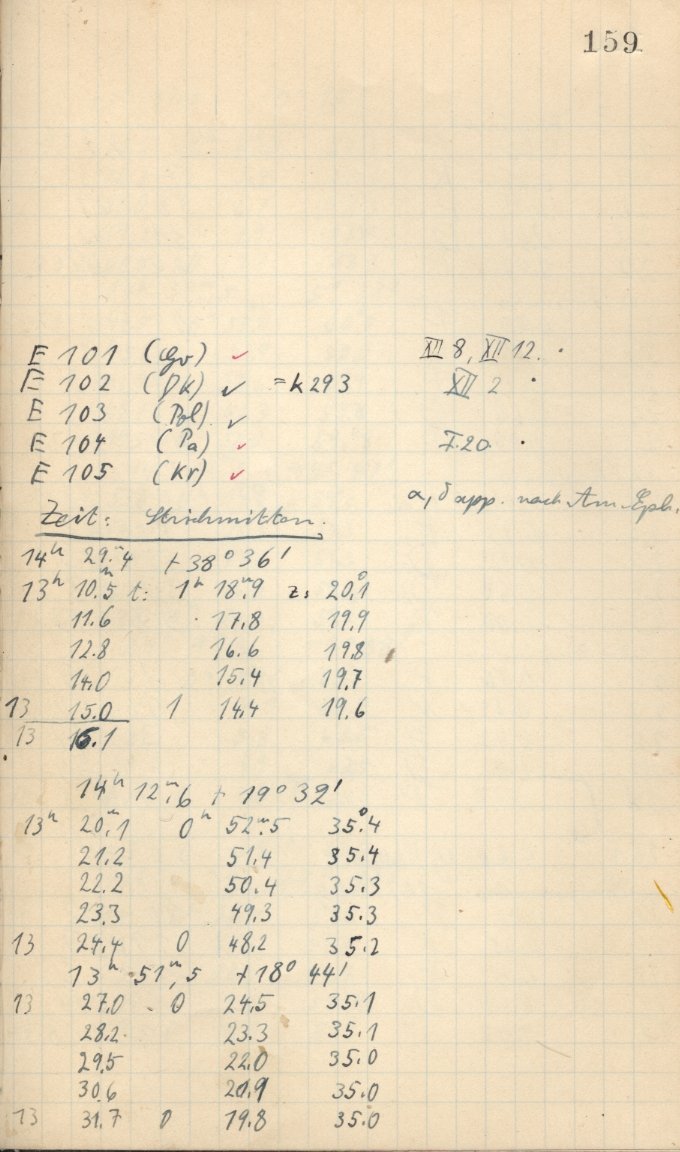 159
E 101 (Gv) ✓ XII 8, XII 12.
E 102 (DK) ✓ = k 293 XII 2
E 103 (Pol) ✓
E 104 (Pa) ✓ I.20
E 105 (Kr) ✓
α, δ app. nach Am. Eph.
Zeit: Strichmitten.
14h 29m.4 + 38° 36'
13h 10m.5 t: 1h 18m.9 z: 20°.1
11.6 17.8 19.9
12.8 16.6 19.8
14.0 15.4 19.7
13 15.0 1 14.4 19.6
13 16.1
14h 12m.6 + 19° 32'
13h 20m.1 0h 52m.5 35°.4
21.2 51.4 35.4
22.2 50.4 35.3
23.3 49.3 35.3
13 24.4 0 48.2 35.2
13h 51m,5 + 18° 44'
13 27.0 0 24.5 35.1
28.2 23.3 35.1
29.5 22.0 35.0
30.6 20.9 35.0
13 31.7 0 19.8 35.0